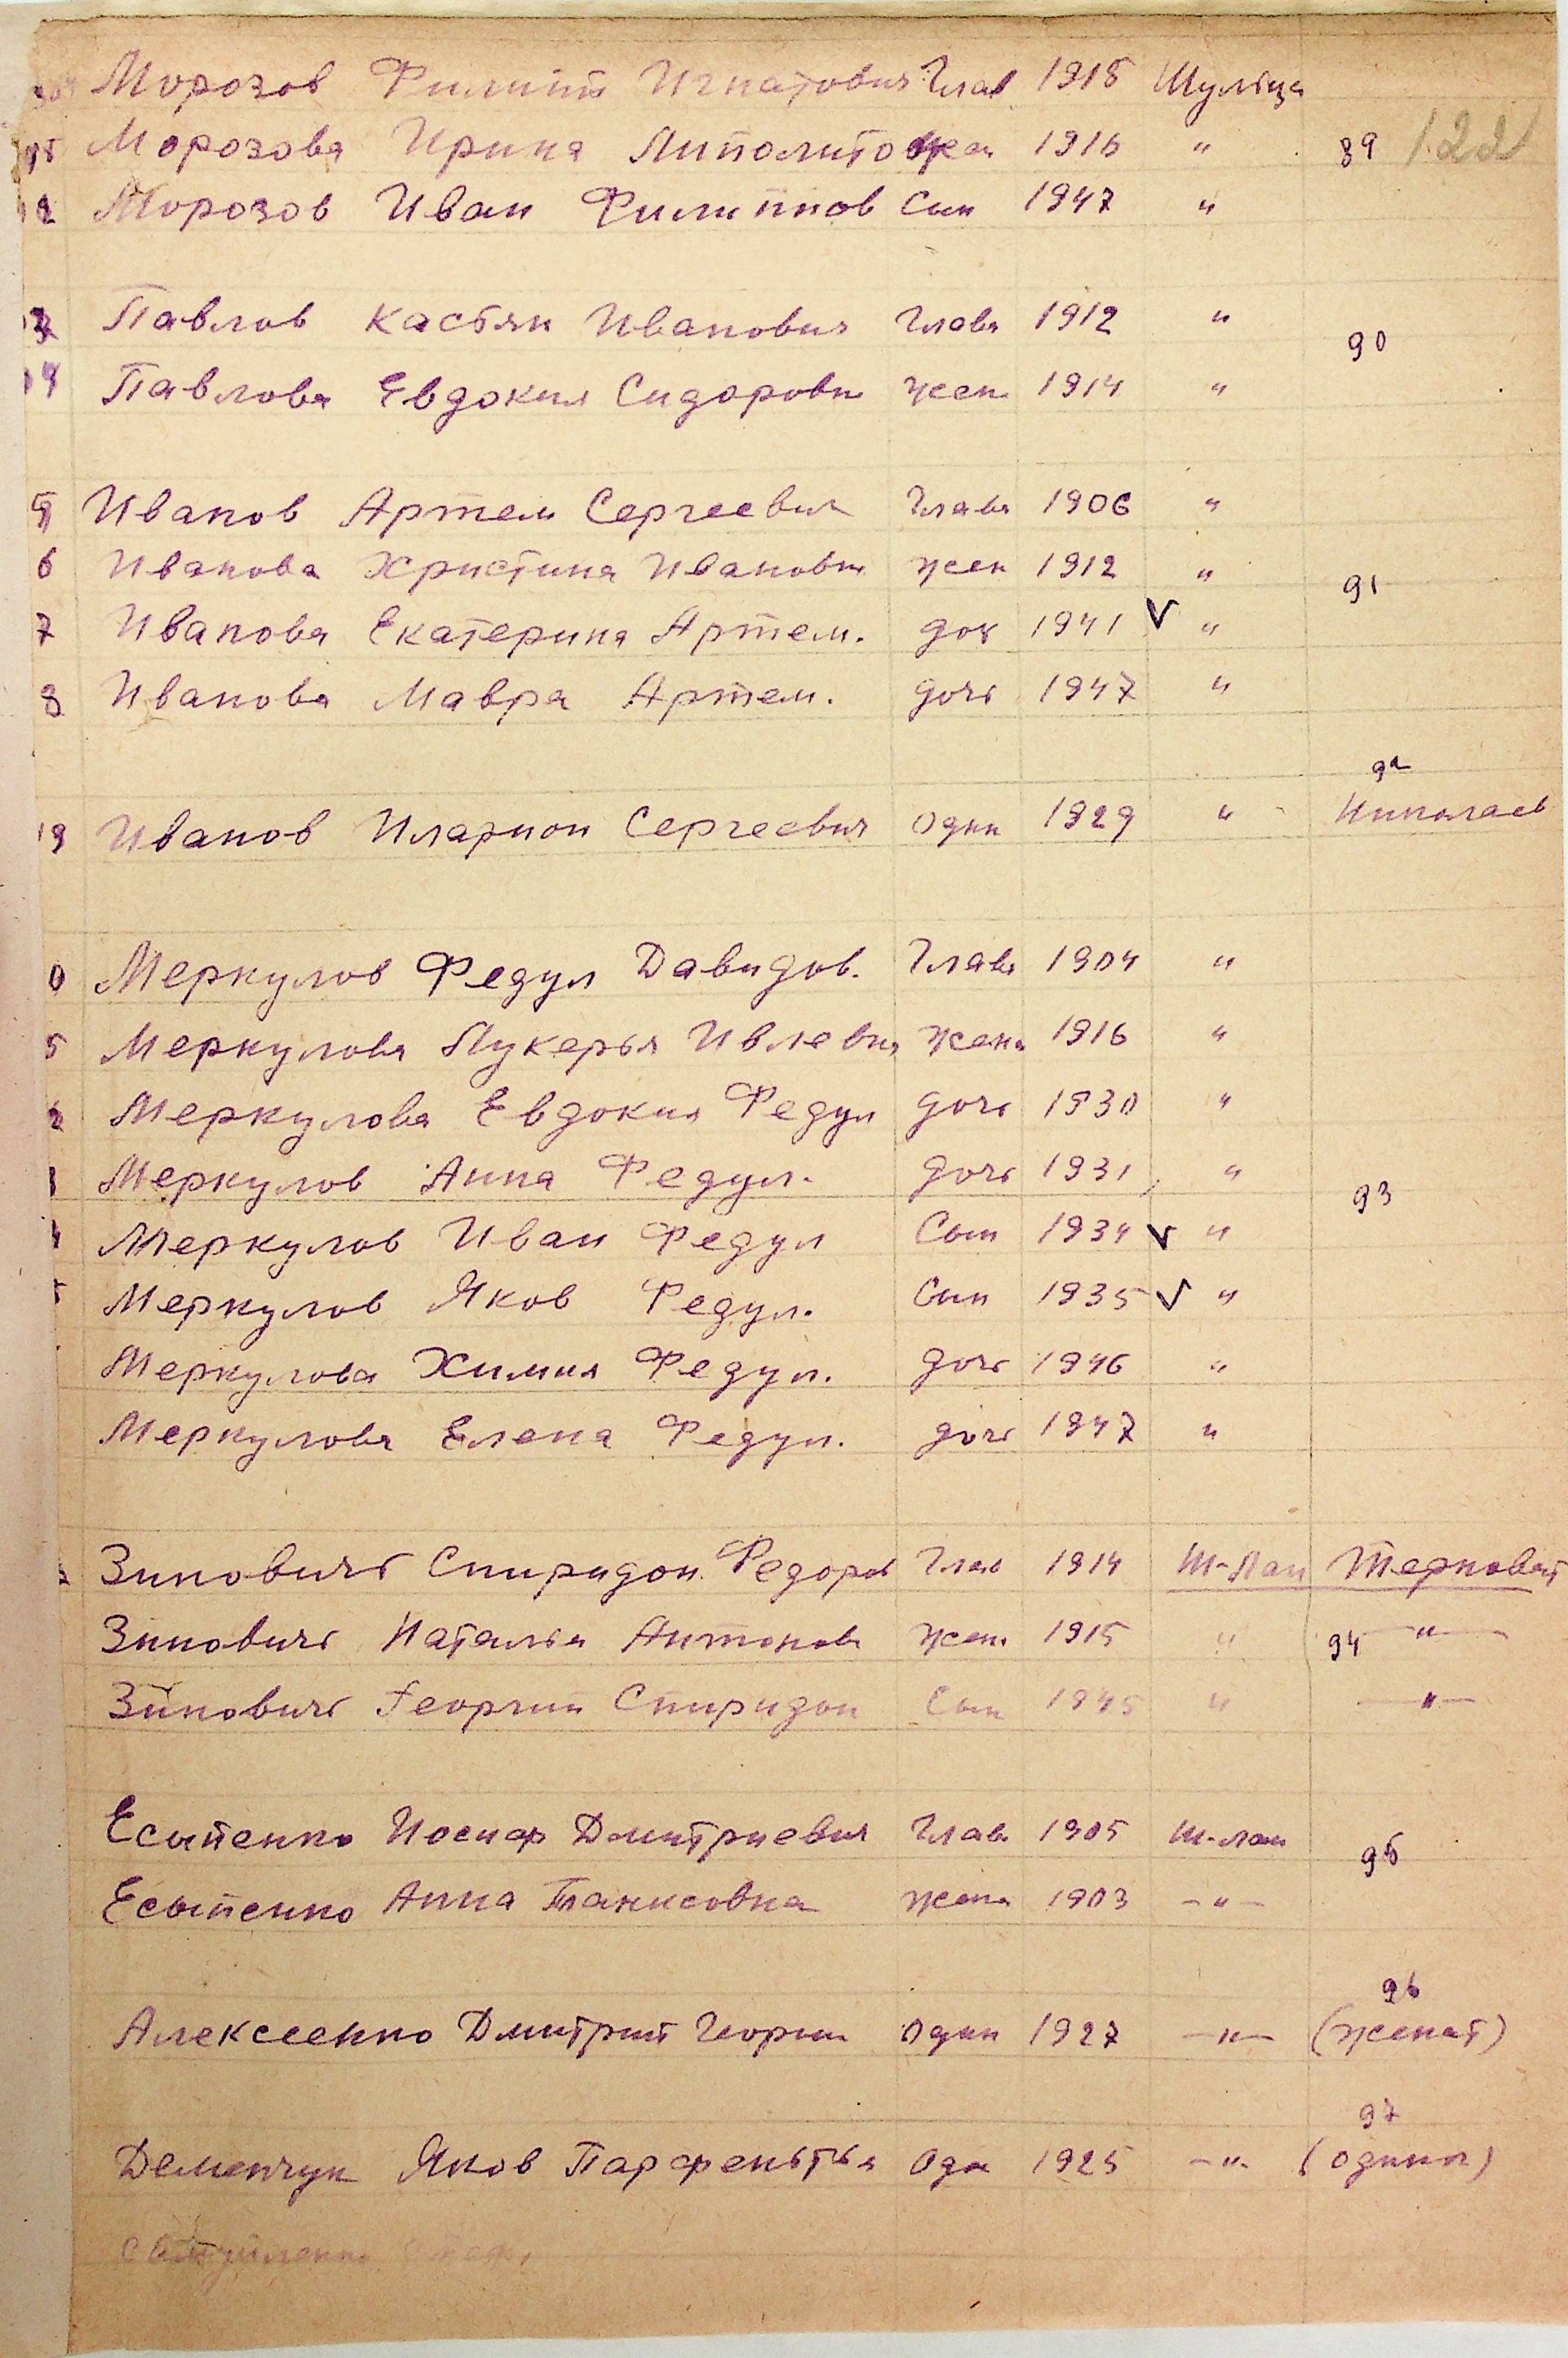 Морозов Филипп Игнатович Глав 1915 Шульца
Морозова Ирина Липолитов жен 1916 " 89 122
2 Морозов Иван Филиппов Сын 1947 "
3 Павлов Касьян Иванович Глава 1912 " 90
4 Павлова Евдокия Сидоровн жен 1914 "
5 Иванов Артем Сергеевич Глава 1906 "
6 Иванова Христина Ивановн жен 1912 " 91
7 Иванова Екатерина Артем. доч 1941 V "
8 Иванова Мавра Артем. дочь 1947 "
92
19 Иванов Иларион Сергеевич Один 1929 " Николаев
0 Меркулов Федул Давидов. Глава 1904 "
5 Меркулова Лукерья Ивлевна жена 1916 "
2 Меркулова Евдокия Федул дочь 1930 "
Меркулов Анна Федул. дочь 1931 " 93
Меркулов Иван Федул Сын 1934 V "
Меркулов Яков Федул. Сын 1935 V "
Меркулова Химия Федул. дочь 1946 "
Меркулова Елена Федул. дочь 1947 "
Зиновичь Спиридон Федоров Глав 1914 Ш-Лан Терноват
Зиновичь Наталья Антонова жена 1915 " 94 — " —
Зиновичь Георгий Спиридон Сын 1945 " — " —
Есыпенко Иосиф Дмитриевич Глава 1905 Ш-лан 95
Есыпенко Анна Танисовна жена 1903 - " -
96
Алексеенко Дмитрий Георги Один 1927 - " - (женат)
97
Деменчук Яков Парфентья Оди 1925 - " - (одинок)